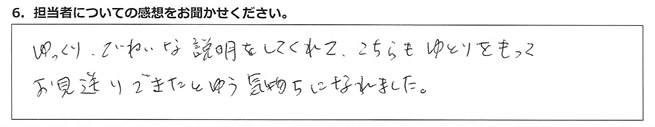 6. 担当者についての感想をお聞かせください。
ゆっくり、ていねいな説明をしてくれて、こちらもゆとりをもって
お見送りできたとゆう気持ちになれました。